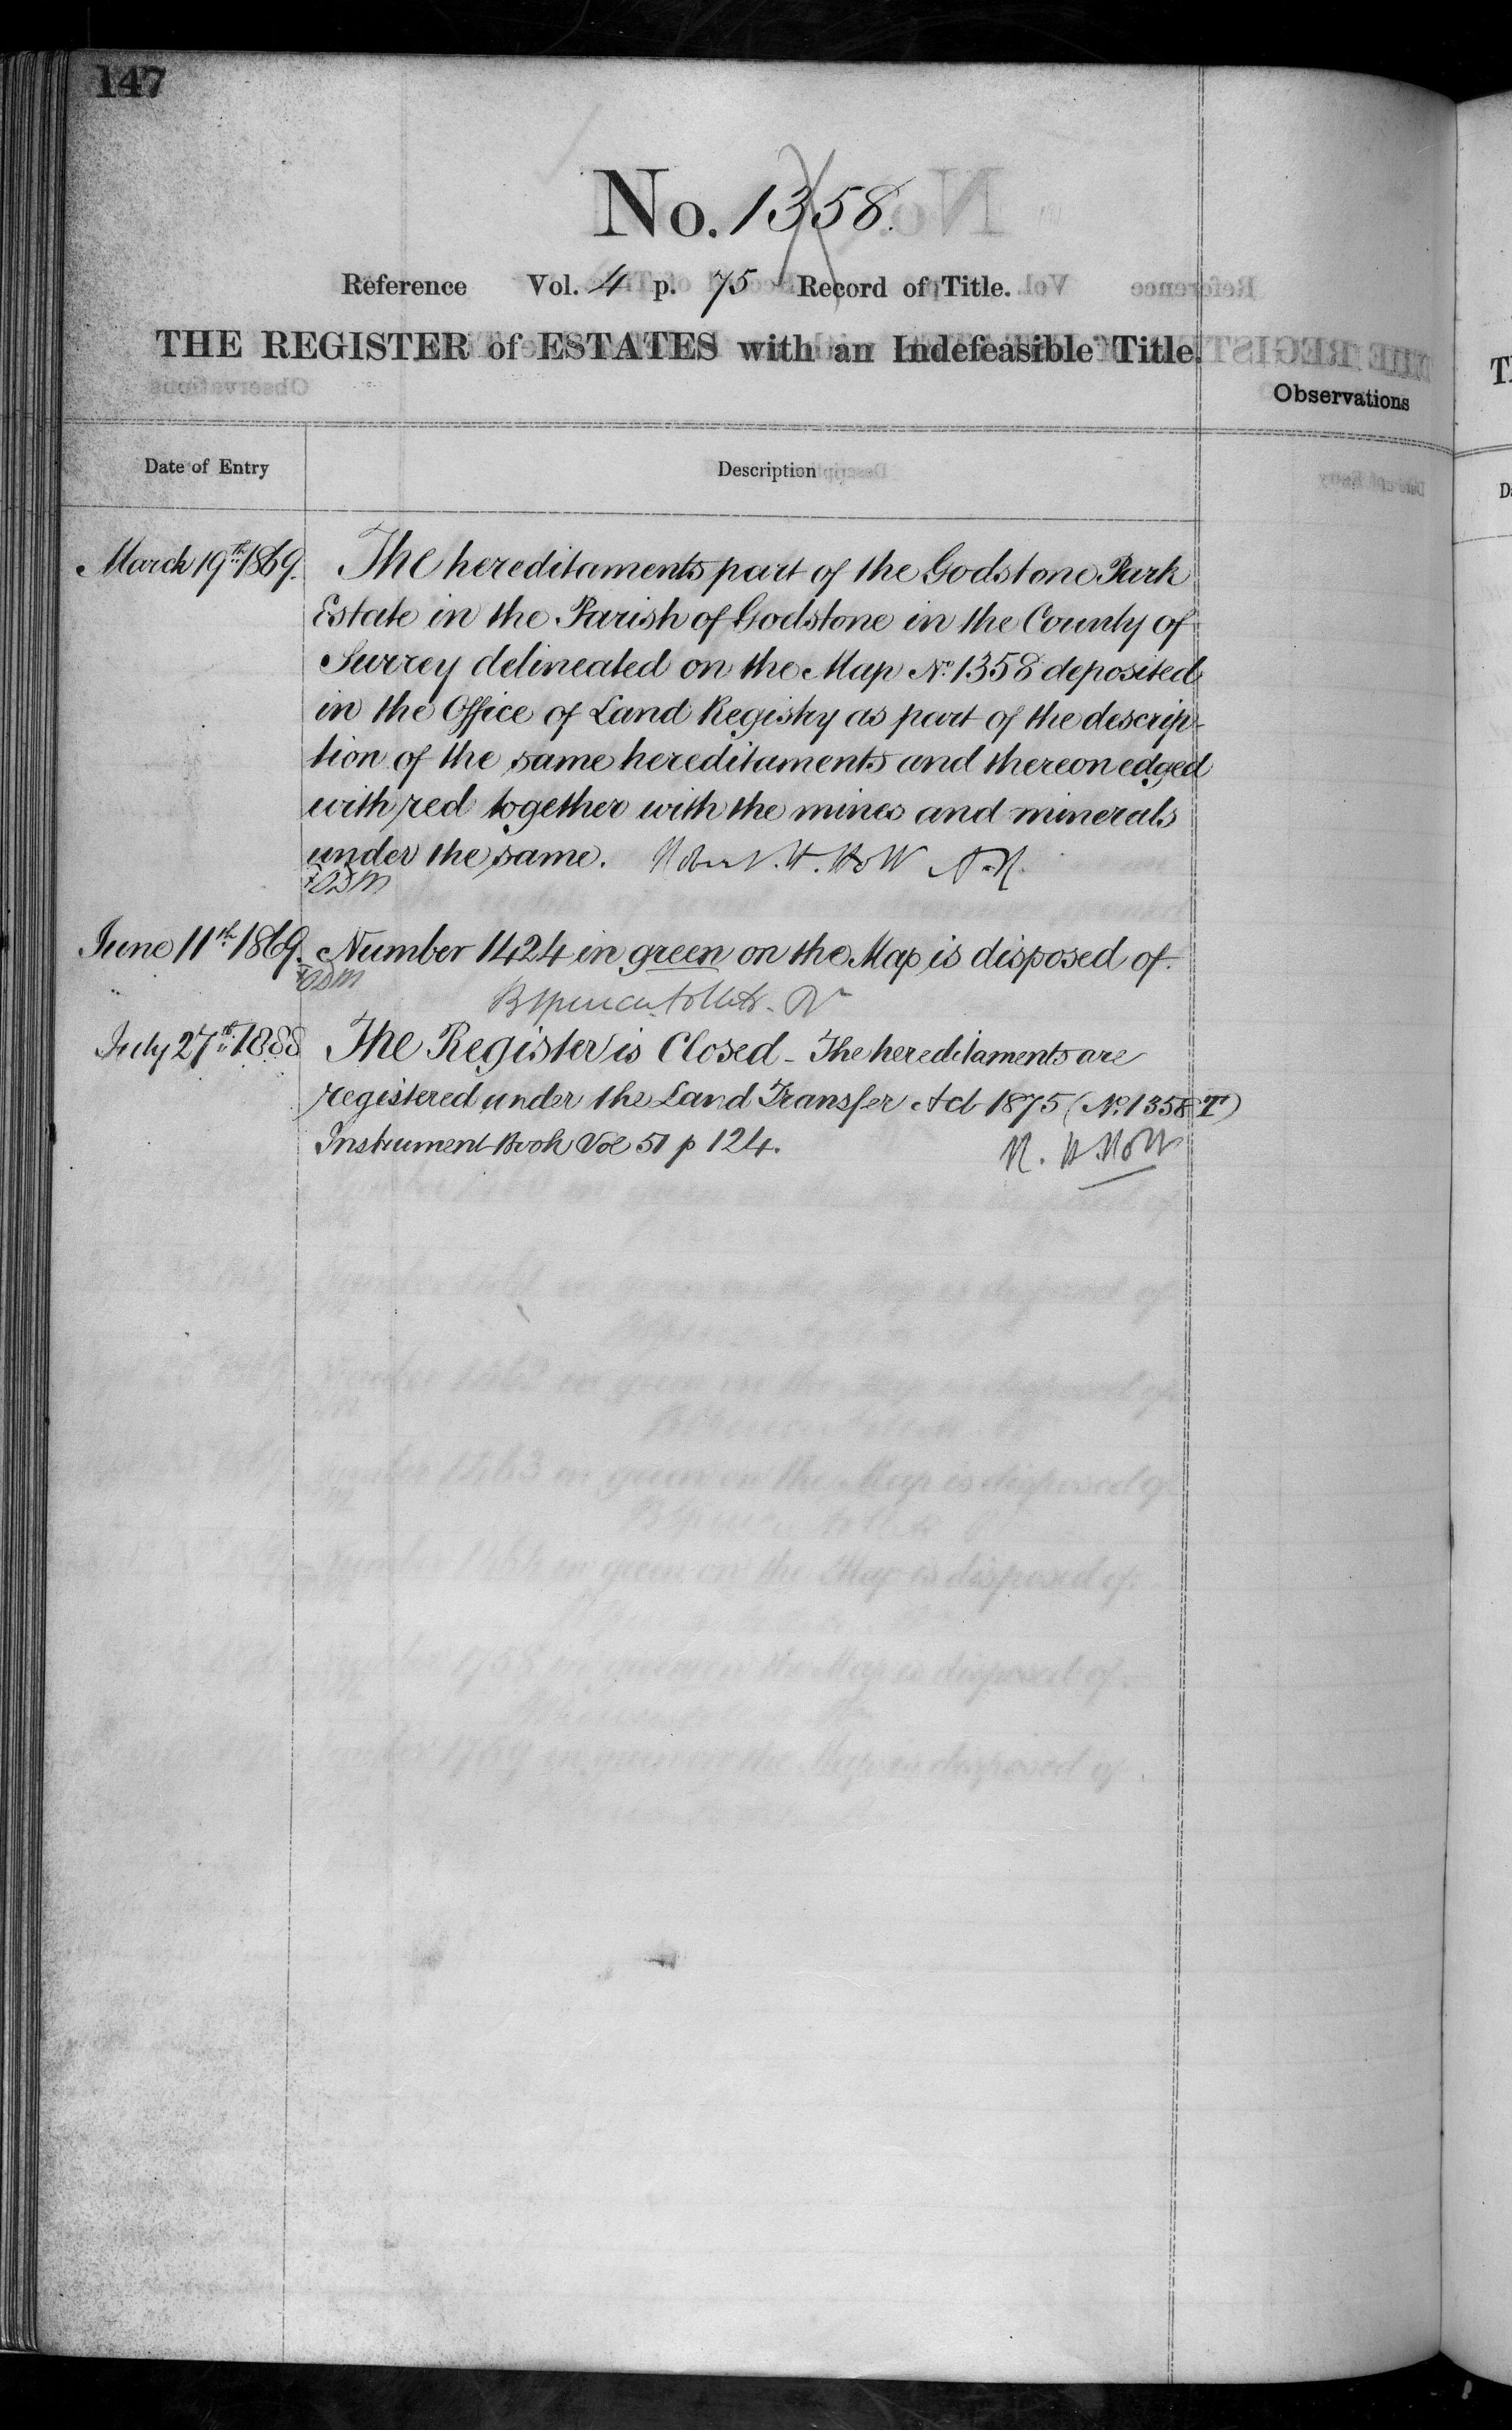 147
No. 1358.
Reference Vol. 4 p. 75 Record of Title.
THE REGISTER of ESTATES with an Indefeasible Title.
Observations
Date of Entry Description
March 19th 1869. The hereditaments part of the Godstone Park
Estate in the Parish of Godstone in the County of
Surrey delineated on the Map No. 1358 deposited
in the Office of Land Registry as part of the descrip-
tion of the same hereditaments and thereon edged
with red together with the mines and minerals
under the same.
June 11th 1869. Number 1424 in green on the Map is disposed of.
July 27th 1888 The Register is Closed - The hereditaments are
registered under the Land Transfer Act 1875 (No. 1358 T)
Instrument Book Vol 51 p 124.